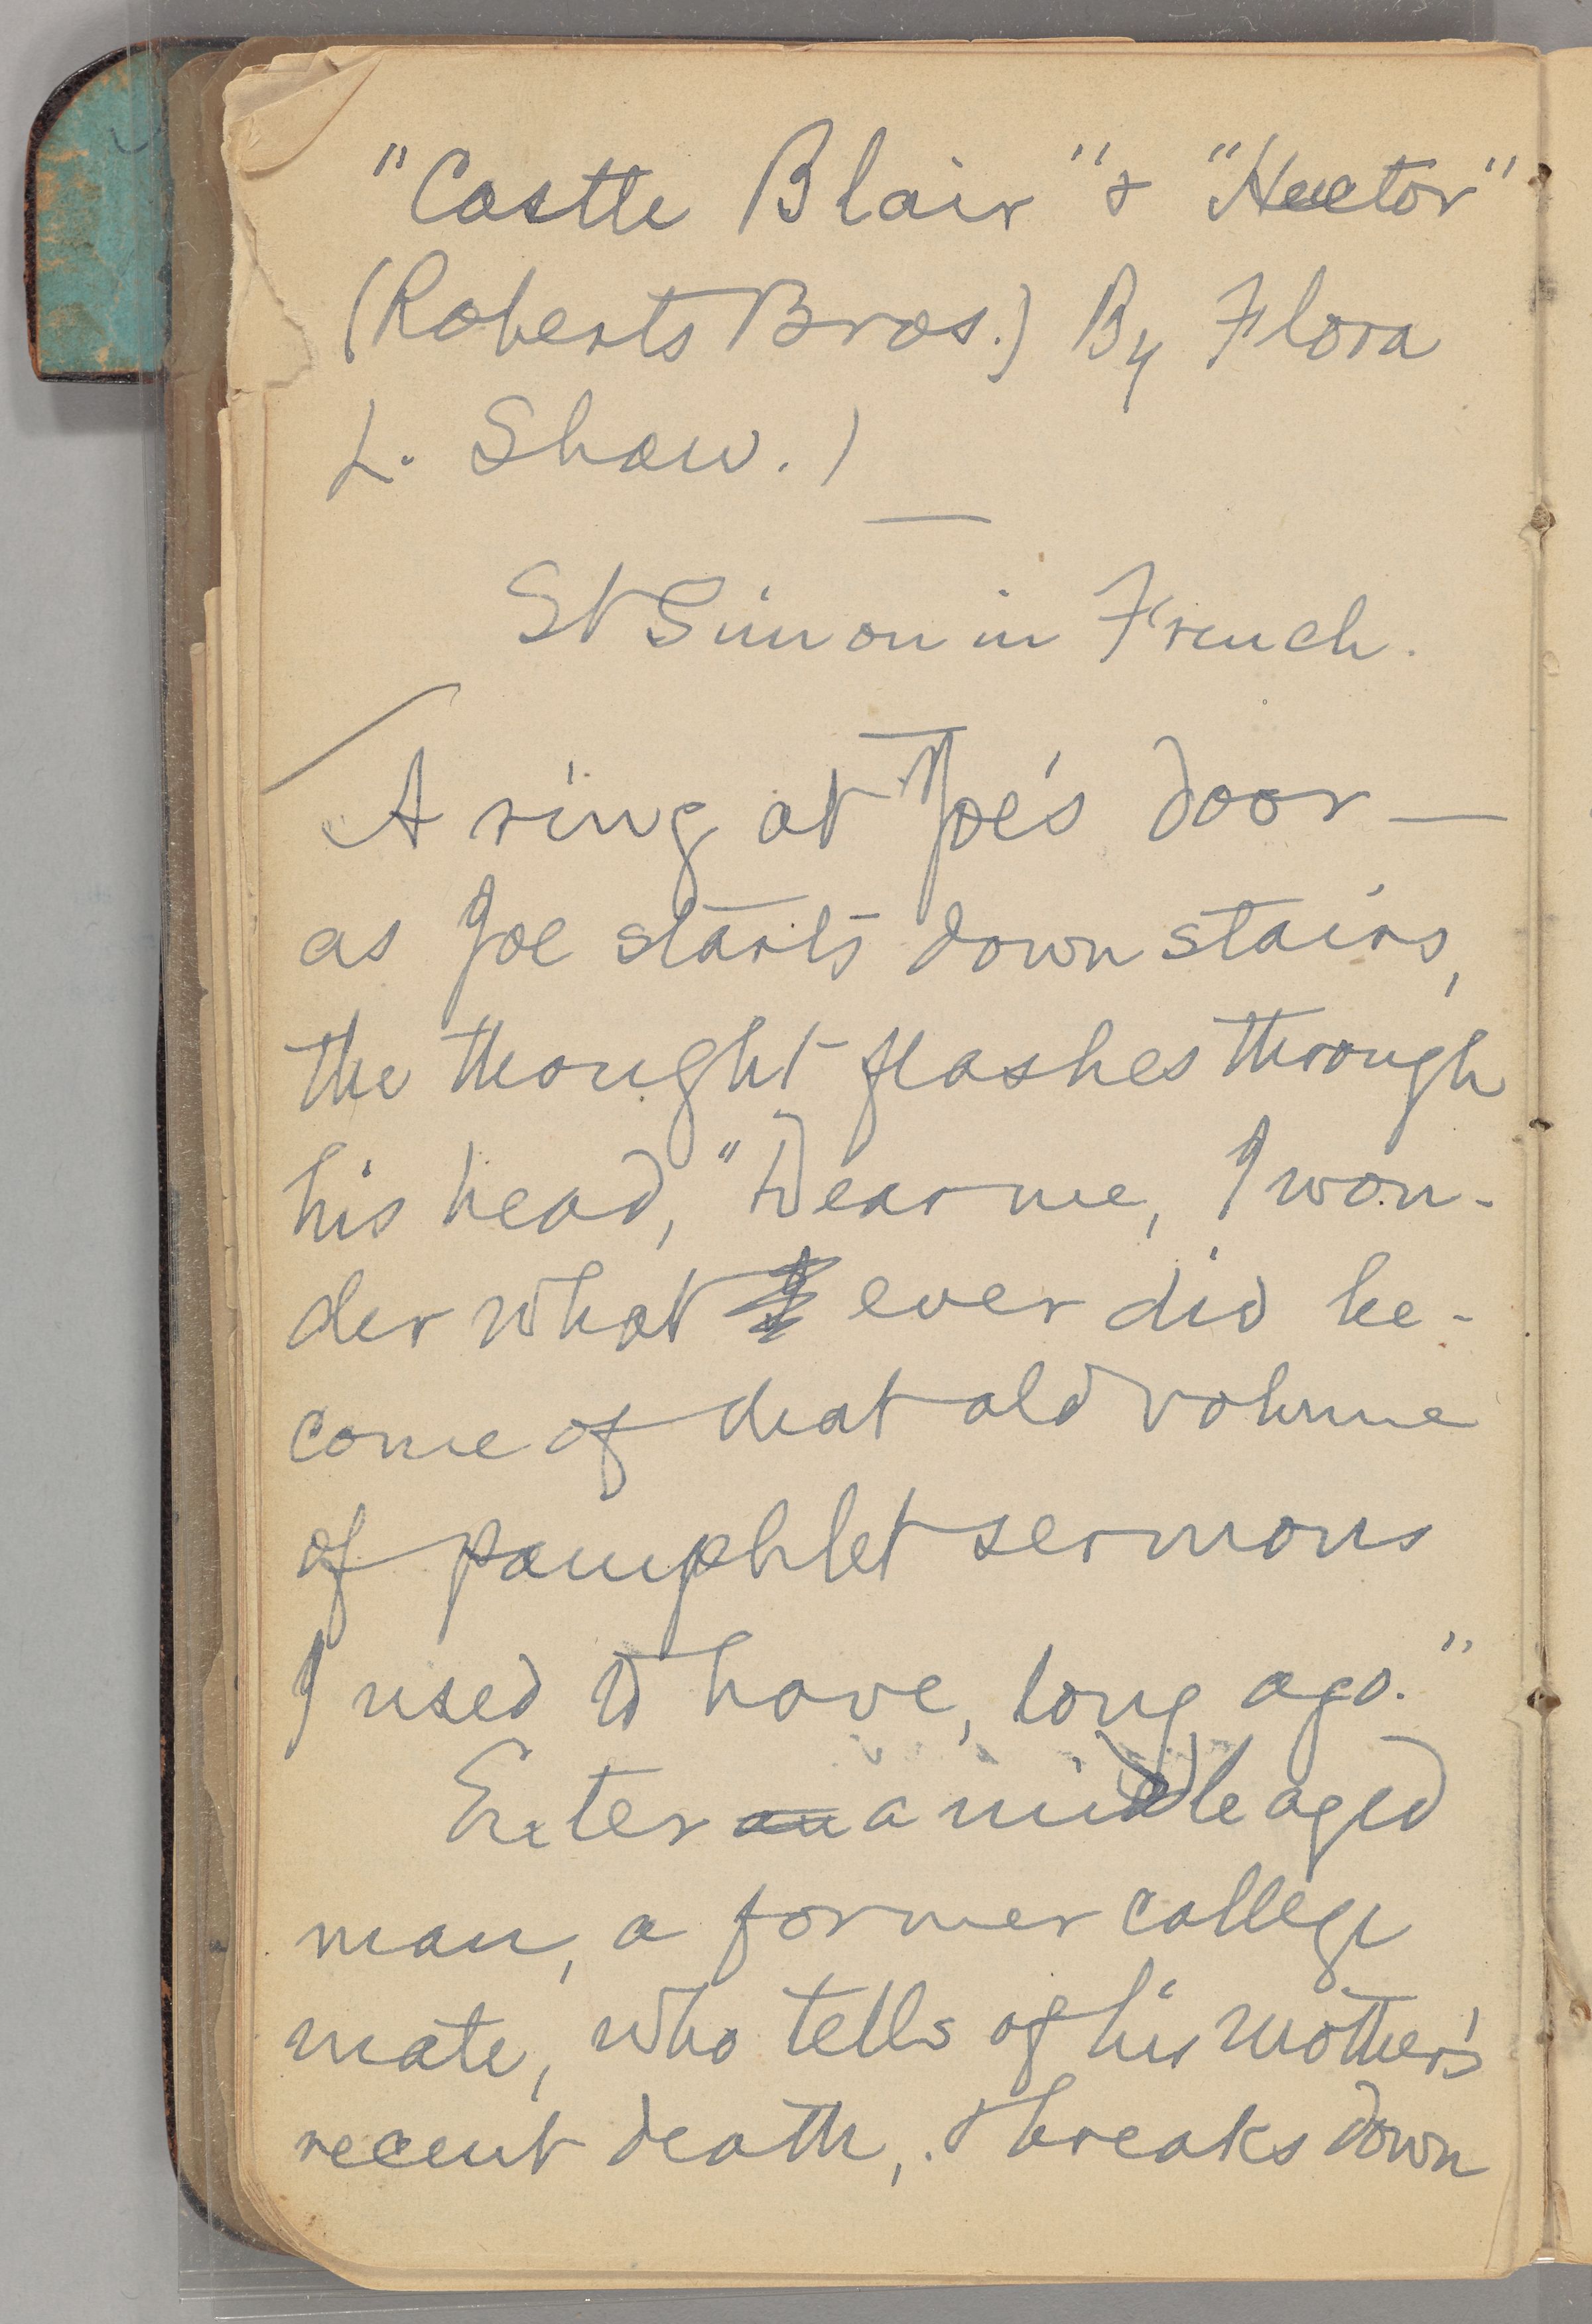 "Castle Blair" & "Hector"
(Roberts Bros.) By Flora
L. Shaw.)
St Simon in French.
A ring at Joe's door —
as Joe starts down stairs,
the thought flashes through
his head, "Dear me, I won-
der what I ever did be-
come of that old volume
of pamphlet sermons
I used to have, long ago."
Enter an a middle aged
man, a former college
mate, who tells of his mother's
recent death, & breaks down